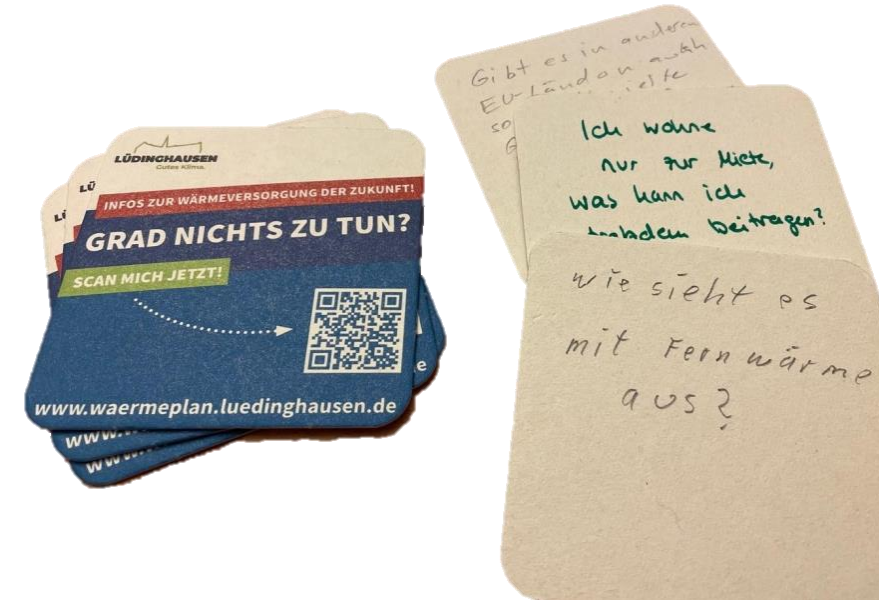 LÜDINGHAUSEN
Gutes Klima.
INFOS ZUR WÄRMEVERSORGUNG DER ZUKUNFT!
GRAD NICHTS ZU TUN?
SCAN MICH JETZT!
www.waermeplan.luedinghausen.de
LÜ
LÜ
e
www.
www.
Gibt es in anderen
EU-Ländern auch
so
G
Ich wohne
nur zur Miete,
was kann ich
trotzdem beitragen?
wie sieht es
mit Fernwärme
aus?